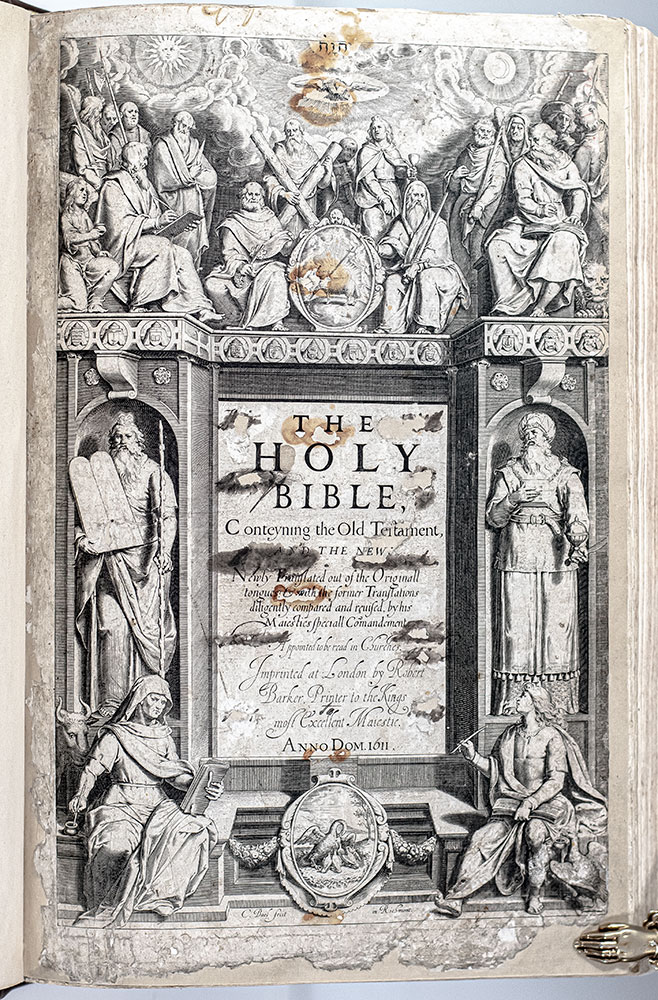 יהוה
THE
HOLY
BIBLE,
Conteyning the Old Teſtament,
AND THE NEW:
Newly Tranſlated out of the Originall
tongues: & with the former Tranſlations
diligently compared and reuiſed, by his
Maieſties ſpeciall Comandement.
Appointed to be read in Churches.
Imprinted at London by Robert
Barker, Printer to the Kings
moſt Excellent Maieſtie.
ANNO DOM. 1611.
C. Boel fecit in Richmont.